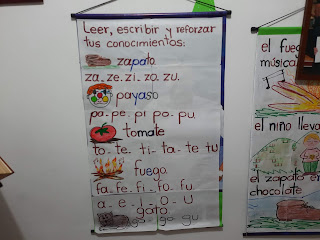 Leer, escribir y reforzar
tus conocimientos:
zapato
za. ze. zi. zo. zu.
payaso
pa. pe. pi po. pu.
tomate
to. te. ti. ta. te tu
fuego
fa. fe. fi. fo. fu
a. e. i. o. u
gato
go gu
el fueg
música
el niño lleva
el zapato
chocolate